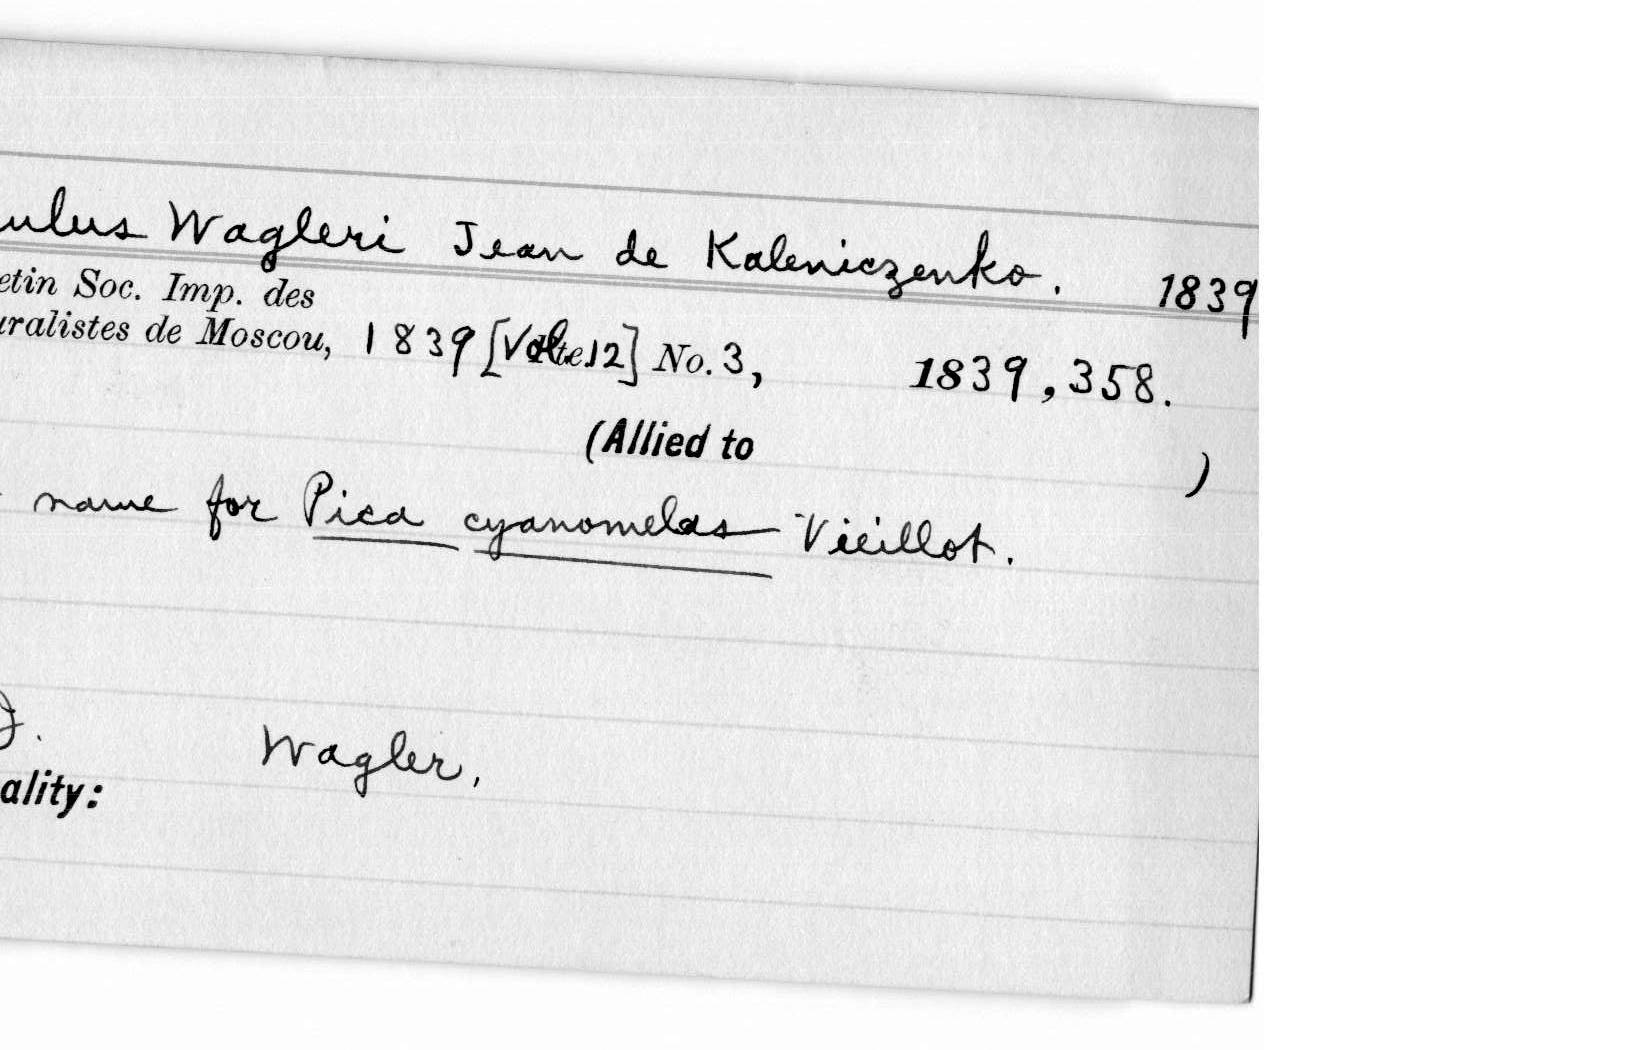 ulus Wagleri Jean de Kaleniczenko. 1839
etin Soc. Imp. des
uralistes de Moscou, 1839 [Vol. 12] No. 3, 1839, 358.
(Allied to )
name for Pica cyanomelas Vieillot.
Wagler,
ality: